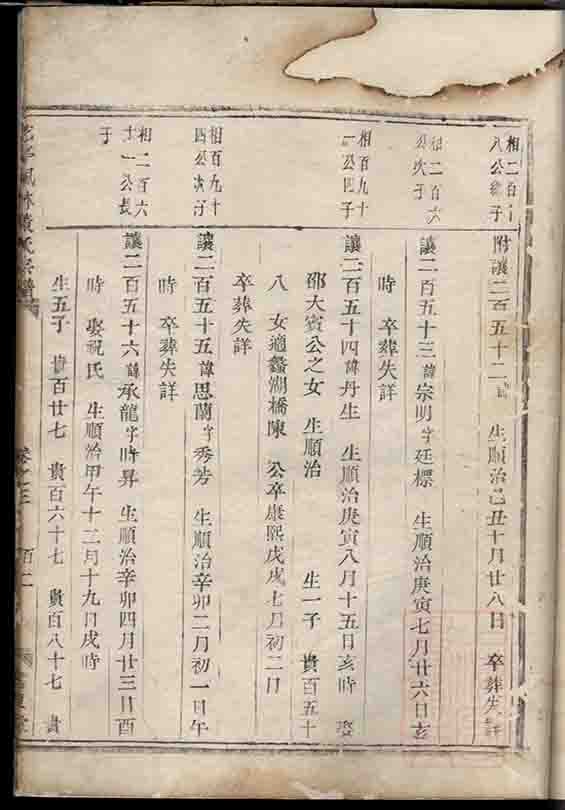 相二百
八公 子
附讓二百五十二諱 生順治己丑十月廿八日 卒葬失詳
相二百六
公次子
讓二百五十三諱宗明字廷標 生順治庚寅七月廿六日亥
時 卒葬失詳
相百九十
一公四子
讓二百五十四諱丹生 生順治庚寅八月十五日亥時 娶
邵大賓公之女 生順治 生一子 貴百五十
八 女適蠡湖橋陳 公卒康熙戊戌七月初二日
卒葬失詳
相百九十
四公次子
讓二百五十五諱思蘭字秀芳 生順治辛卯二月初一日午
時 卒葬失詳
相二百六
十一公長
子
讓二百五十六諱承龍字時昇 生順治辛卯四月廿三日酉
時 娶祝氏 生順治甲午十二月十九日戌時
生五子 貴百廿七 貴百六十七 貴百八十七 貴
林黃氏宗譜 卷之三 百二